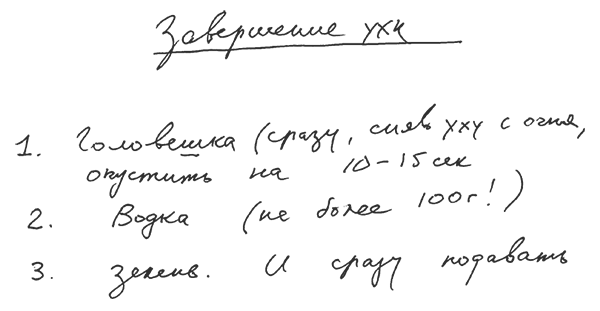 Завершение ухи
1. Головешка (сразу, сняв уху с огня,
опустить на 10-15 сек
2. Водка (не более 100г!)
3. Зелень. И сразу подавать